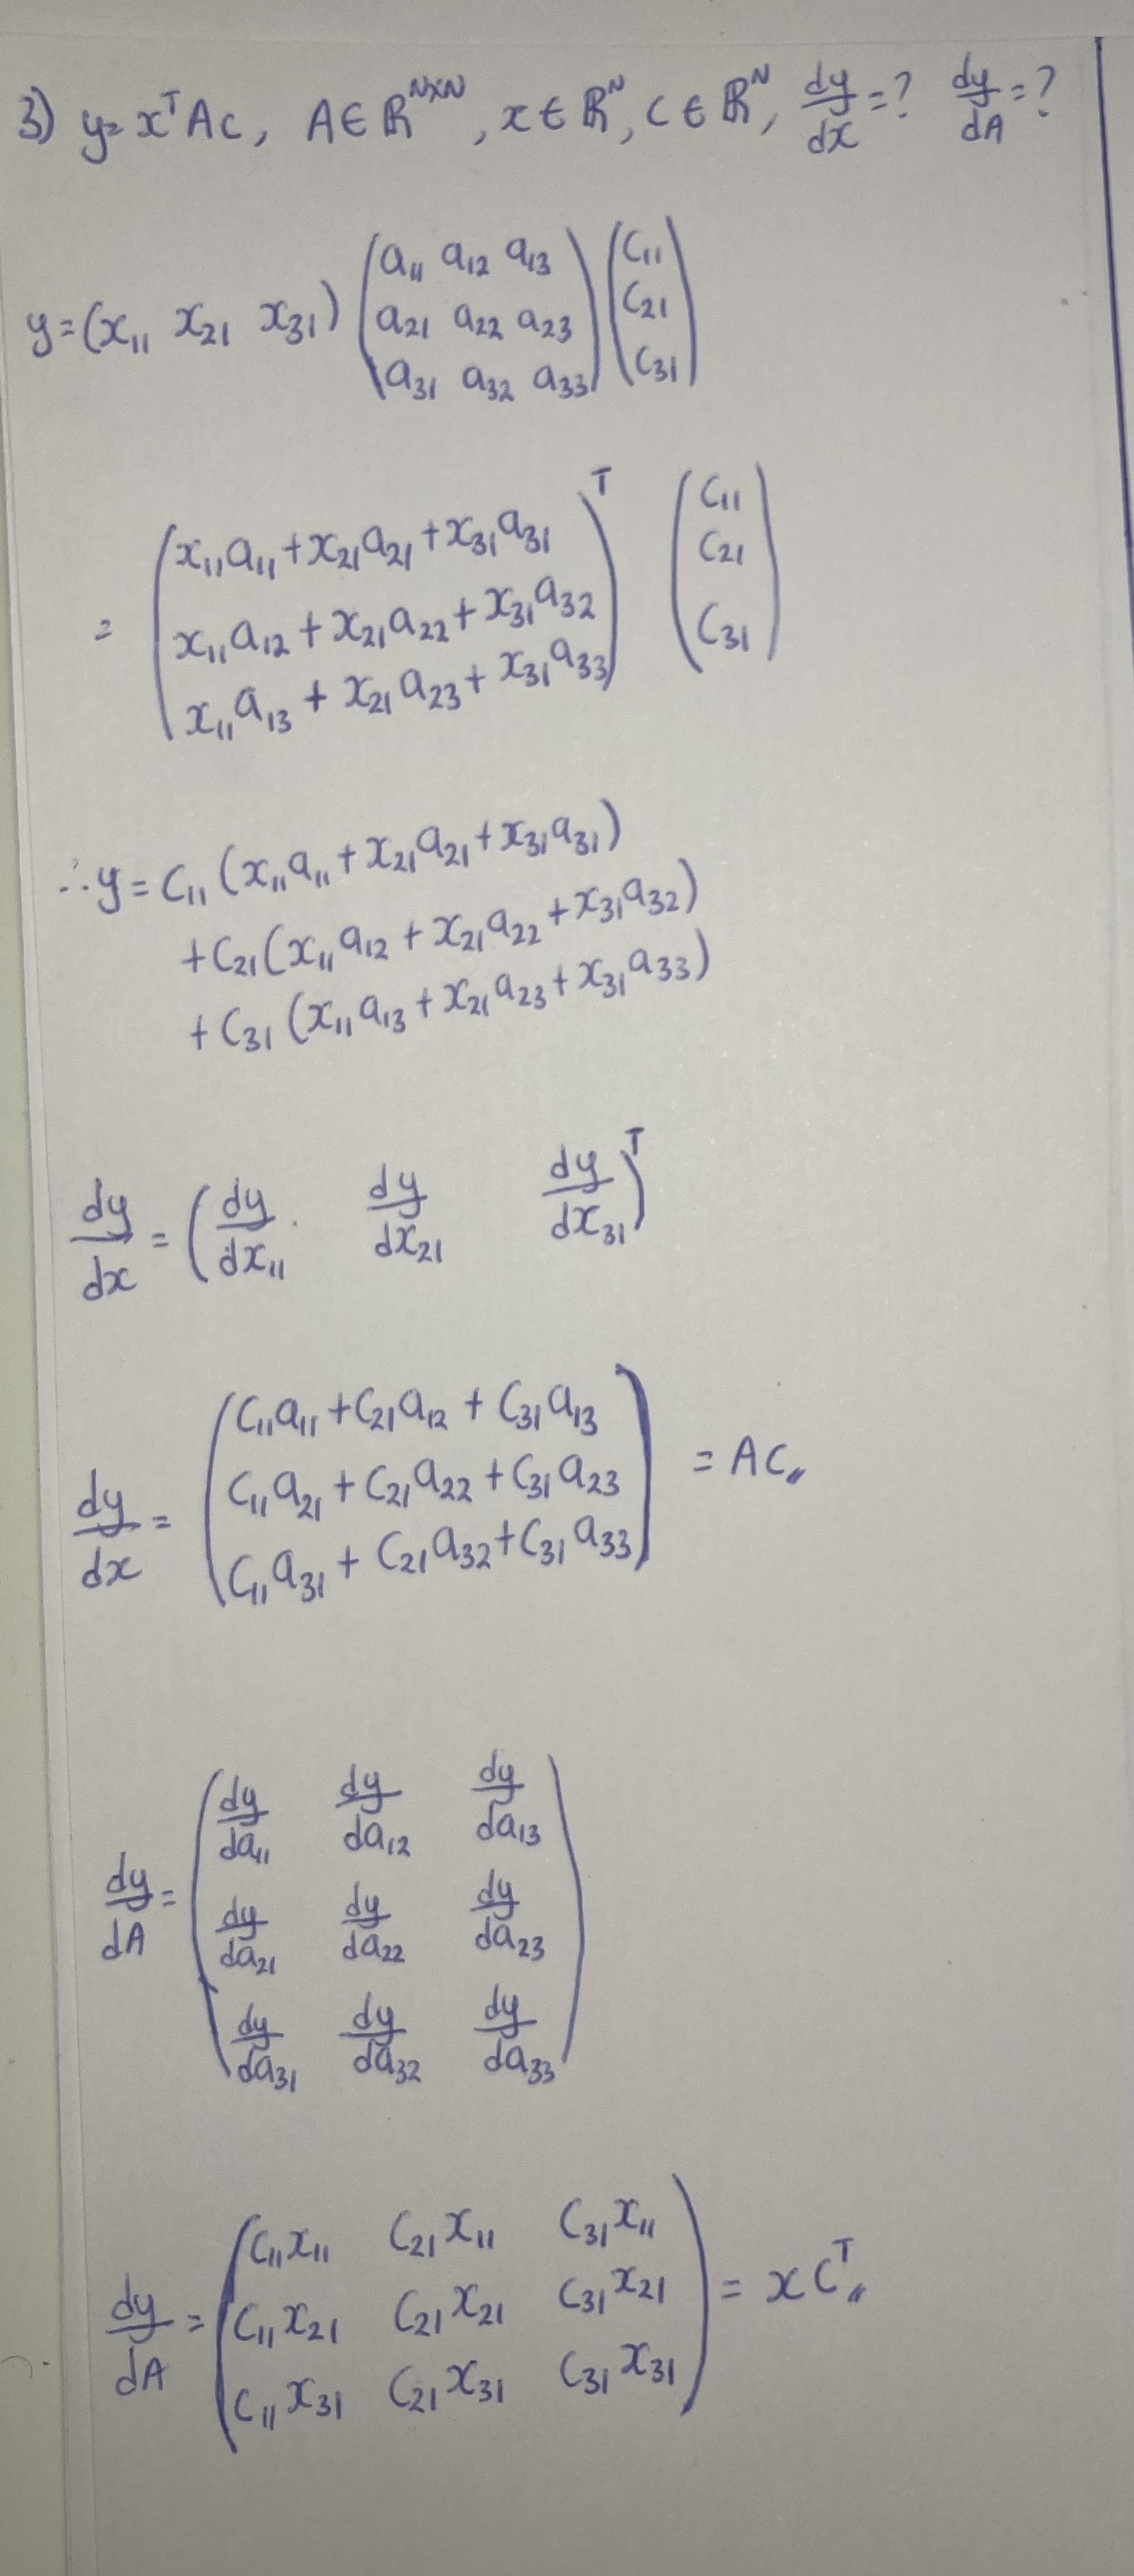 3) y = xᵀAc, A ∈ ℝᴺˣᴺ, x ∈ ℝᴺ, c ∈ ℝᴺ, dy/dx = ? dy/dA = ?
y = (x₁₁ x₂₁ x₃₁) (a₁₁ a₁₂ a₁₃ (c₁₁
a₂₁ a₂₂ a₂₃ c₂₁
a₃₁ a₃₂ a₃₃) c₃₁)
= (x₁₁a₁₁ + x₂₁a₂₁ + x₃₁a₃₁ (c₁₁
x₁₁a₁₂ + x₂₁a₂₂ + x₃₁a₃₂ c₂₁
x₁₁a₁₃ + x₂₁a₂₃ + x₃₁a₃₃)ᵀ c₃₁)
∴ y = c₁₁(x₁₁a₁₁ + x₂₁a₂₁ + x₃₁a₃₁)
+ c₂₁(x₁₁a₁₂ + x₂₁a₂₂ + x₃₁a₃₂)
+ c₃₁(x₁₁a₁₃ + x₂₁a₂₃ + x₃₁a₃₃)
dy/dx = (dy/dx₁₁ dy/dx₂₁ dy/dx₃₁)ᵀ
dy/dx = (c₁₁a₁₁ + c₂₁a₁₂ + c₃₁a₁₃
c₁₁a₂₁ + c₂₁a₂₂ + c₃₁a₂₃
c₁₁a₃₁ + c₂₁a₃₂ + c₃₁a₃₃) = Ac〃
dy/dA = (dy/da₁₁ dy/da₁₂ dy/da₁₃
dy/da₂₁ dy/da₂₂ dy/da₂₃
dy/da₃₁ dy/da₃₂ dy/da₃₃)
dy/dA = (c₁₁x₁₁ c₂₁x₁₁ c₃₁x₁₁
c₁₁x₂₁ c₂₁x₂₁ c₃₁x₂₁
c₁₁x₃₁ c₂₁x₃₁ c₃₁x₃₁) = xcᵀ〃